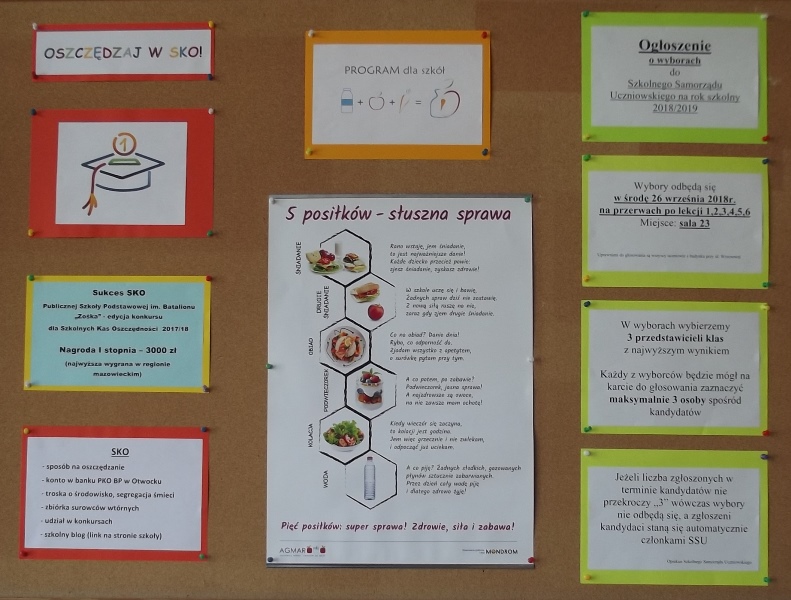 OSZCZĘDZAJ W SKO!
1
Sukces SKO
Publicznej Szkoły Podstawowej im. Batalionu
„Zośka” - edycja konkursu
dla Szkolnych Kas Oszczędności 2017/18
Nagroda I stopnia – 3000 zł
(najwyższa wygrana w regionie
mazowieckim)
SKO
- sposób na oszczędzanie
- konto w banku PKO BP w Otwocku
- troska o środowisko, segregacja śmieci
- zbiórka surowców wtórnych
- udział w konkursach
- szkolny blog (link na stronie szkoły)
PROGRAM dla szkół
+ + =
5 posiłków - słuszna sprawa
ŚNIADANIE
Rano wstaję, jem śniadanie,
to jest najważniejsze danie!
Każde dziecko przecież powie:
zjesz śniadanie, zyskasz zdrowie!
DRUGIE
ŚNIADANIE
W szkole uczę się i bawię,
Żadnych spraw dziś nie zostawię.
Z nową siłą ruszę na nie,
zaraz gdy zjem drugie śniadanie.
OBIAD
Co na obiad? Danie dnia!
Ryba, co odporność da.
Zjadam wszystko z apetytem,
o surówkę pytam przy tym.
PODWIECZOREK
A co potem, po zabawie?
Podwieczorek, jasna sprawa!
A najzdrowsze są owoce,
na nie zawsze mam ochotę!
KOLACJA
Kiedy wieczór się zaczyna,
to kolacji jest godzina.
Jem więc grzecznie i nie zwlekam,
i odpocząć już uciekam.
WODA
A co piję? Żadnych słodkich, gazowanych
płynów sztucznie zabarwianych.
Przez dzień cały wodę piję
i dlatego zdrowo żyję!
Pięć posiłków: super sprawa! Zdrowie, siła i zabawa!
AGMAR
MONDROM
Ogłoszenie
o wyborach
do
Szkolnego Samorządu
Uczniowskiego na rok szkolny
2018/2019
Wybory odbędą się
w środę 26 września 2018r.
na przerwach po lekcji 1,2,3,4,5,6
Miejsce: sala 23
W wyborach wybierzemy
3 przedstawicieli klas
z najwyższym wynikiem
Każdy z wyborców będzie mógł na
karcie do głosowania zaznaczyć
maksymalnie 3 osoby spośród
kandydatów
Jeżeli liczba zgłoszonych w
terminie kandydatów nie
przekroczy „3” wówczas wybory
nie odbędą się, a zgłoszeni
kandydaci staną się automatycznie
członkami SSU
Opiekun Szkolnego Samorządu Uczniowskiego